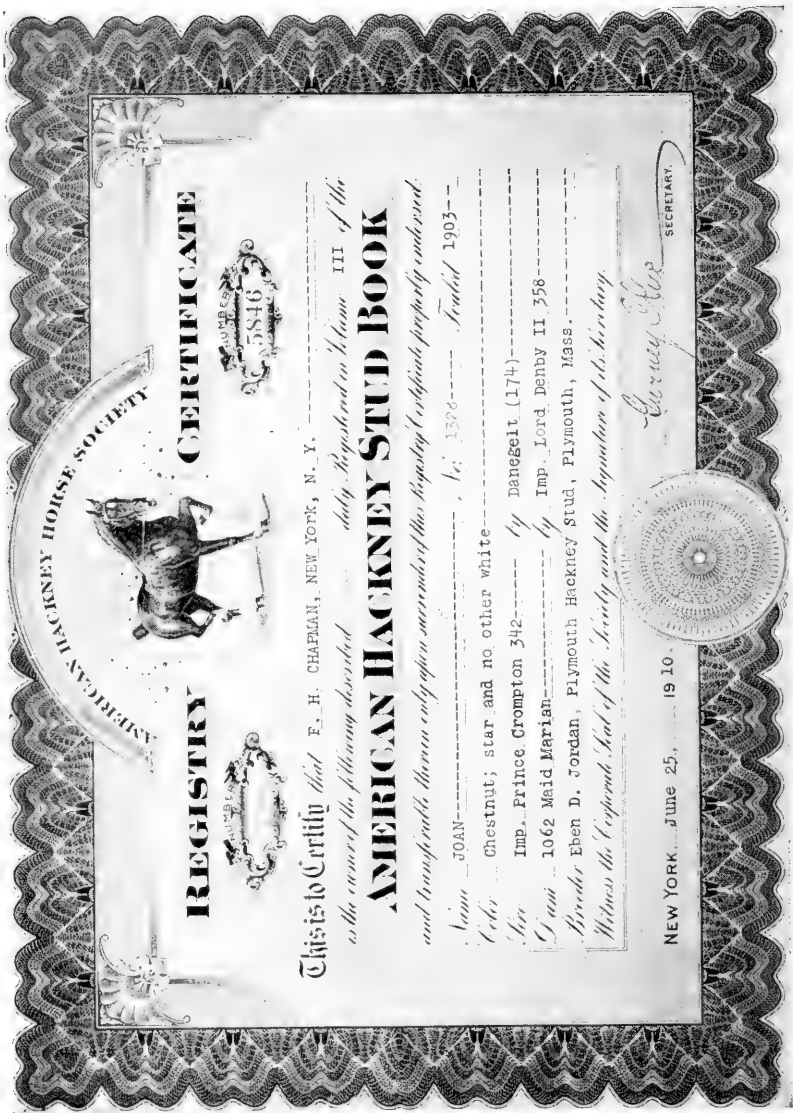 AMERICAN HACKNEY HORSE SOCIETY
REGISTRY CERTIFICATE
NUMBER
NUMBER 5846
This is to Certify that F. H. CHAPMAN, NEW YORK, N. Y.
is the owner of the following described duly Registered in Volume III of the
AMERICAN HACKNEY STUD BOOK
and transferable thereon only upon surrender of this Registry Certificate properly endorsed.
Name JOAN----, No. ---- Foaled 1903--
Color Chestnut; star and no other white----
Sire Imp. Prince Crompton 342---- by Danegelt (174)----
Dam 1062 Maid Marian---- by Imp. Lord Denby II 358----
Breeder Eben D. Jordan, Plymouth Hackney Stud, Plymouth, Mass.----
Witness the Corporate Seal of the Society and the Signature of its Secretary.
NEW YORK, June 25, 1910.
Gurney
SECRETARY.